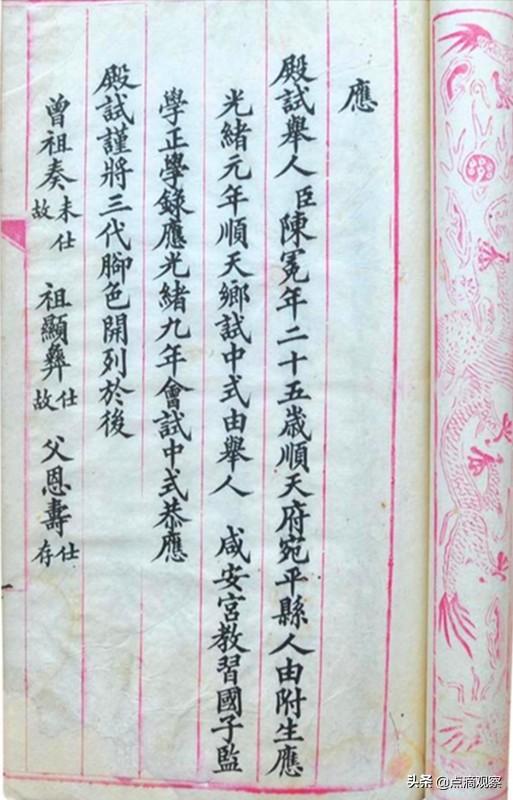 應
殿試舉人臣陳冕年二十五歲順天府宛平縣人由附生應
光緒元年順天鄉試中式由舉人 咸安宮教習國子監
學正學錄應光緒九年會試中式恭應
殿試謹將三代腳色開列於後
曾祖奏未仕故 祖顯彝仕故 父恩壽仕存
头条 @点滴观察